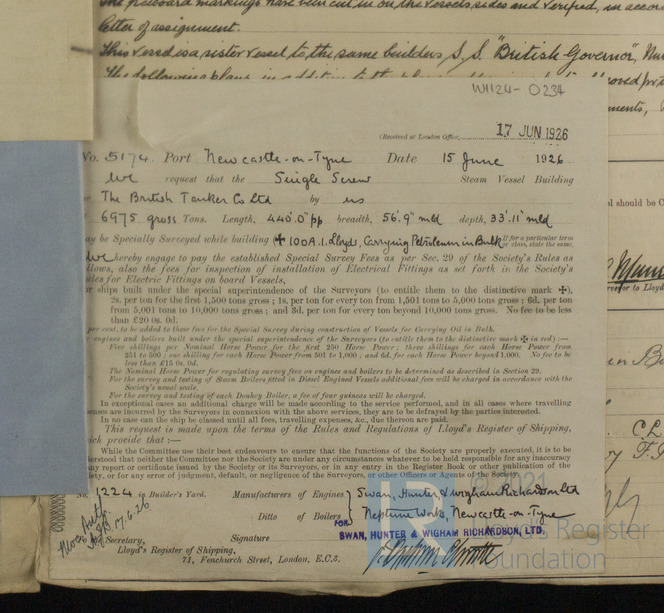 The freeboard markings have been cut in on the vessels sides and verified, in accor
letter of assignment.
This vessel is a sister vessel to the same builders S.S. "British Governor", Num
W1124-0234
(Received at London Office, 17 JUN 1926
No. 5174. Port Newcastle-on-Tyne Date 15 June 1926
We request that the Single Screw Steam Vessel Building
The British Tanker Co Ltd by us
6975 gross Tons. Length, 440'.0" pp breadth, 56'.9" mld depth, 33'.11" mld
ay be Specially Surveyed while building ✠ 100A.1. Lloyds, Carrying Petroleum in Bulk If for a particular term or class, state the same.
We hereby engage to pay the established Special Survey Fees as per Sec. 29 of the Society's Rules as
llows, also the fees for inspection of installation of Electrical Fittings as set forth in the Society's
ules for Electric Fittings on board Vessels,
r ships built under the special superintendence of the Surveyors (to entitle them to the distinctive mark ✠).
2s. per ton for the first 1,500 tons gross; 1s. per ton for every ton from 1,501 tons to 5,000 tons gross; 6d. per ton
from 5,001 tons to 10,000 tons gross; and 3d. per ton for every ton beyond 10,000 tons gross. No fee to be less
than £20 0s. 0d.
per cent. to be added to these fees for the Special Survey during construction of Vessels for Carrying Oil in Bulk.
r engines and boilers built under the special superintendence of the Surveyors (to entitle them to the distinctive mark ✠ in red):—
Five shillings per Nominal Horse Power for the first 250 Horse Power; three shillings for each Horse Power from
251 to 500; one shilling for each Horse Power from 501 to 1,000; and 6d. for each Horse Power beyond 1,000. No fee to be
less than £15 0s. 0d.
The Nominal Horse Power for regulating survey fees on engines and boilers to be determined as described in Section 29.
For the survey and testing of Steam Boilers fitted in Diesel Engined Vessels additional fees will be charged in accordance with the
Society's usual scale.
For the survey and testing of each Donkey Boiler, a fee of four guineas will be charged.
In exceptional cases an additional charge will be made according to the service performed, and in all cases where travelling
enses are incurred by the Surveyors in connexion with the above services, they are to be defrayed by the parties interested.
In no case can the ship be classed until all fees, travelling expenses, &c., due thereon are paid.
This request is made upon the terms of the Rules and Regulations of Lloyd's Register of Shipping,
ich provide that:—
While the Committee use their best endeavours to ensure that the functions of the Society are properly executed, it is to be
derstood that neither the Committee nor the Society are under any circumstances whatever to be held responsible for any inaccuracy
any report or certificate issued by the Society or its Surveyors, or in any entry in the Register Book or other publication of the
iety, or for any error of judgment, default, or negligence of the Surveyors, or other Officers or Agents of the Society.
© 2021
Lloyd's Register
Foundation
No. 1224 in Builder's Yard. Manufacturers of Engines Swan, Hunter, & Wigham Richardson Ltd
Ditto of Boilers Neptune Works, Newcastle-on-Tyne
FOR SWAN, HUNTER & WIGHAM RICHARDSON, LTD.
17.6.26
Secretary, Signature
Lloyd's Register of Shipping,
71, Fenchurch Street, London. E.C.3.